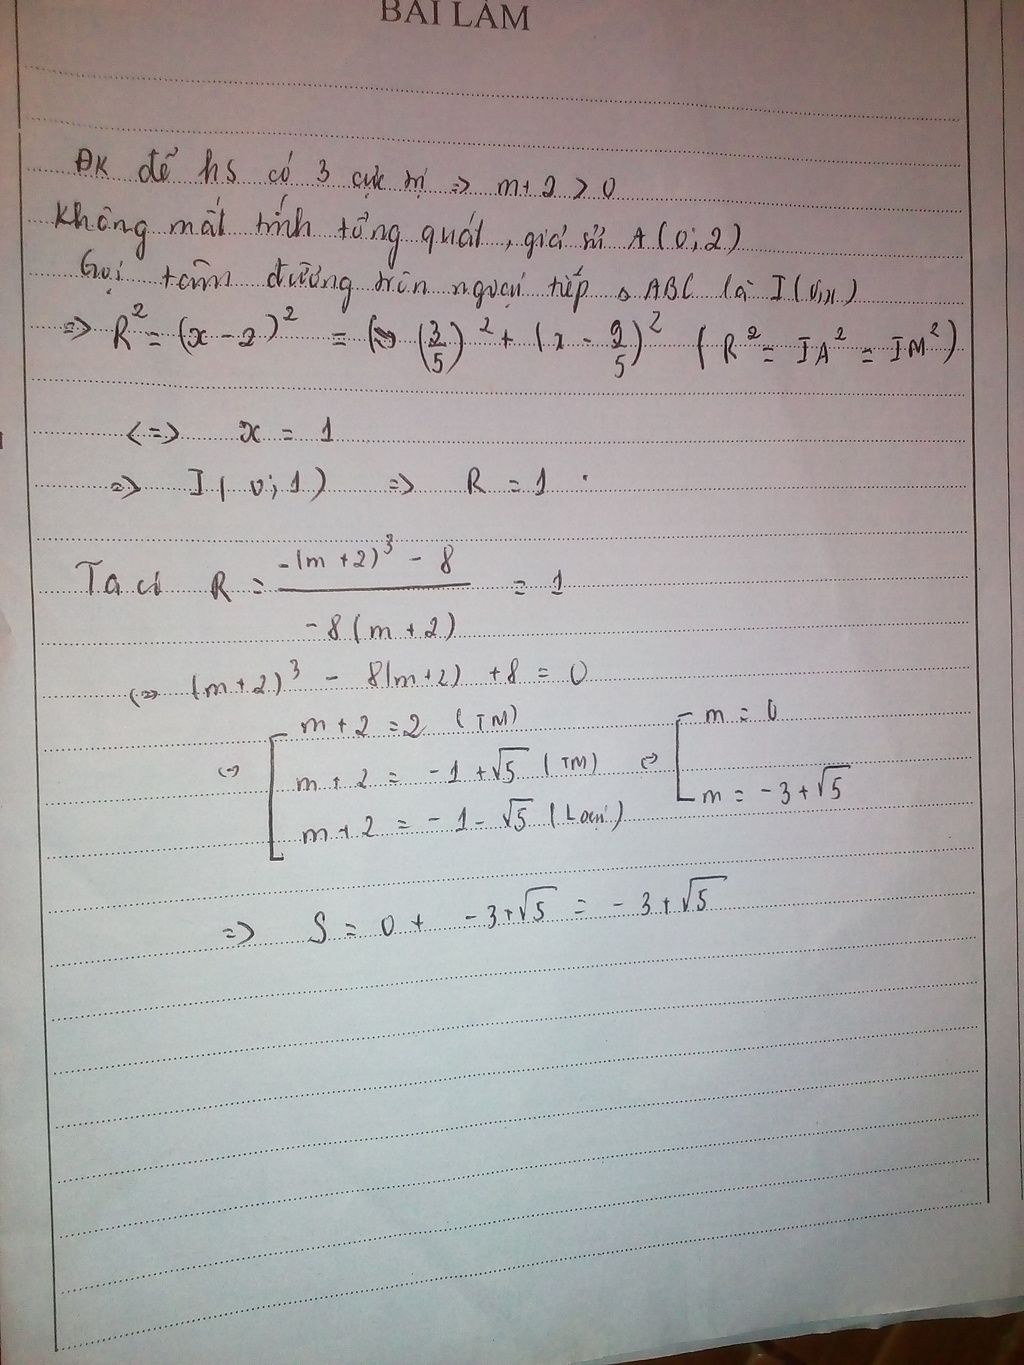 BÀI LÀM
ĐK để hs có 3 cực trị => m+2 > 0
Không mất tính tổng quát, giả sử A(0;2)
Gọi tâm đường tròn ngoại tiếp △ ABC là I(0;x)
=> R² = (x-2)² = (3/5)² + (x - 9/5)² (R² = IA² = IM²)
<=> x = 1
=> I(0;1) => R = 1.
Ta có R = (-(m+2)³ - 8)/(-8(m+2)) = 1
<=> (m+2)³ - 8(m+2) + 8 = 0
<=> [ m+2 = 2 (TM)
m+2 = -1+√5 (TM)
m+2 = -1-√5 (Loại)
<=> [ m = 0
m = -3+√5
=> S = 0 + -3+√5 = -3+√5